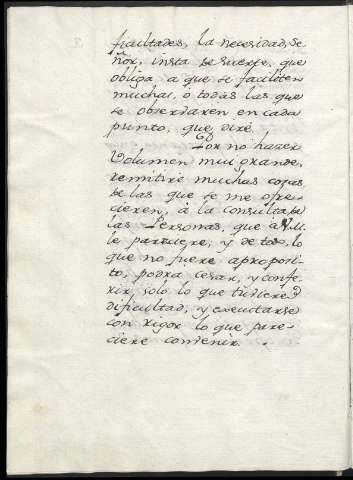 ficultades, la necesidad, Se-
ñor, insta de suerte, que
obliga a que se faciliten
muchas, o todas las que
se observaren en cada
punto, que diré.
Por no hacer
Volumen mui grande,
remitiré muchas cosas
de las que se me ofre-
cieren, à la consulta de
las Personas, que à V.M.
le pareciere, y de todo, lo
que no fuere aproposi-
to, podra cesar, y confe-
rir solo lo que tubiere
dificultad, y executarse
con rigor lo que pare-
ciere combenir.